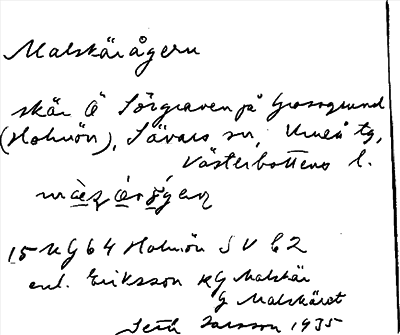 Malskärågern
skär Ö Sörgraven på Grossgrund
(Holmön), Sävars sn, Umeå tg,
Västerbottens l.
15 NG64 Holmön SV C2
enl. Eriksson KG Malskär
G Malskäret
Larsson 1935